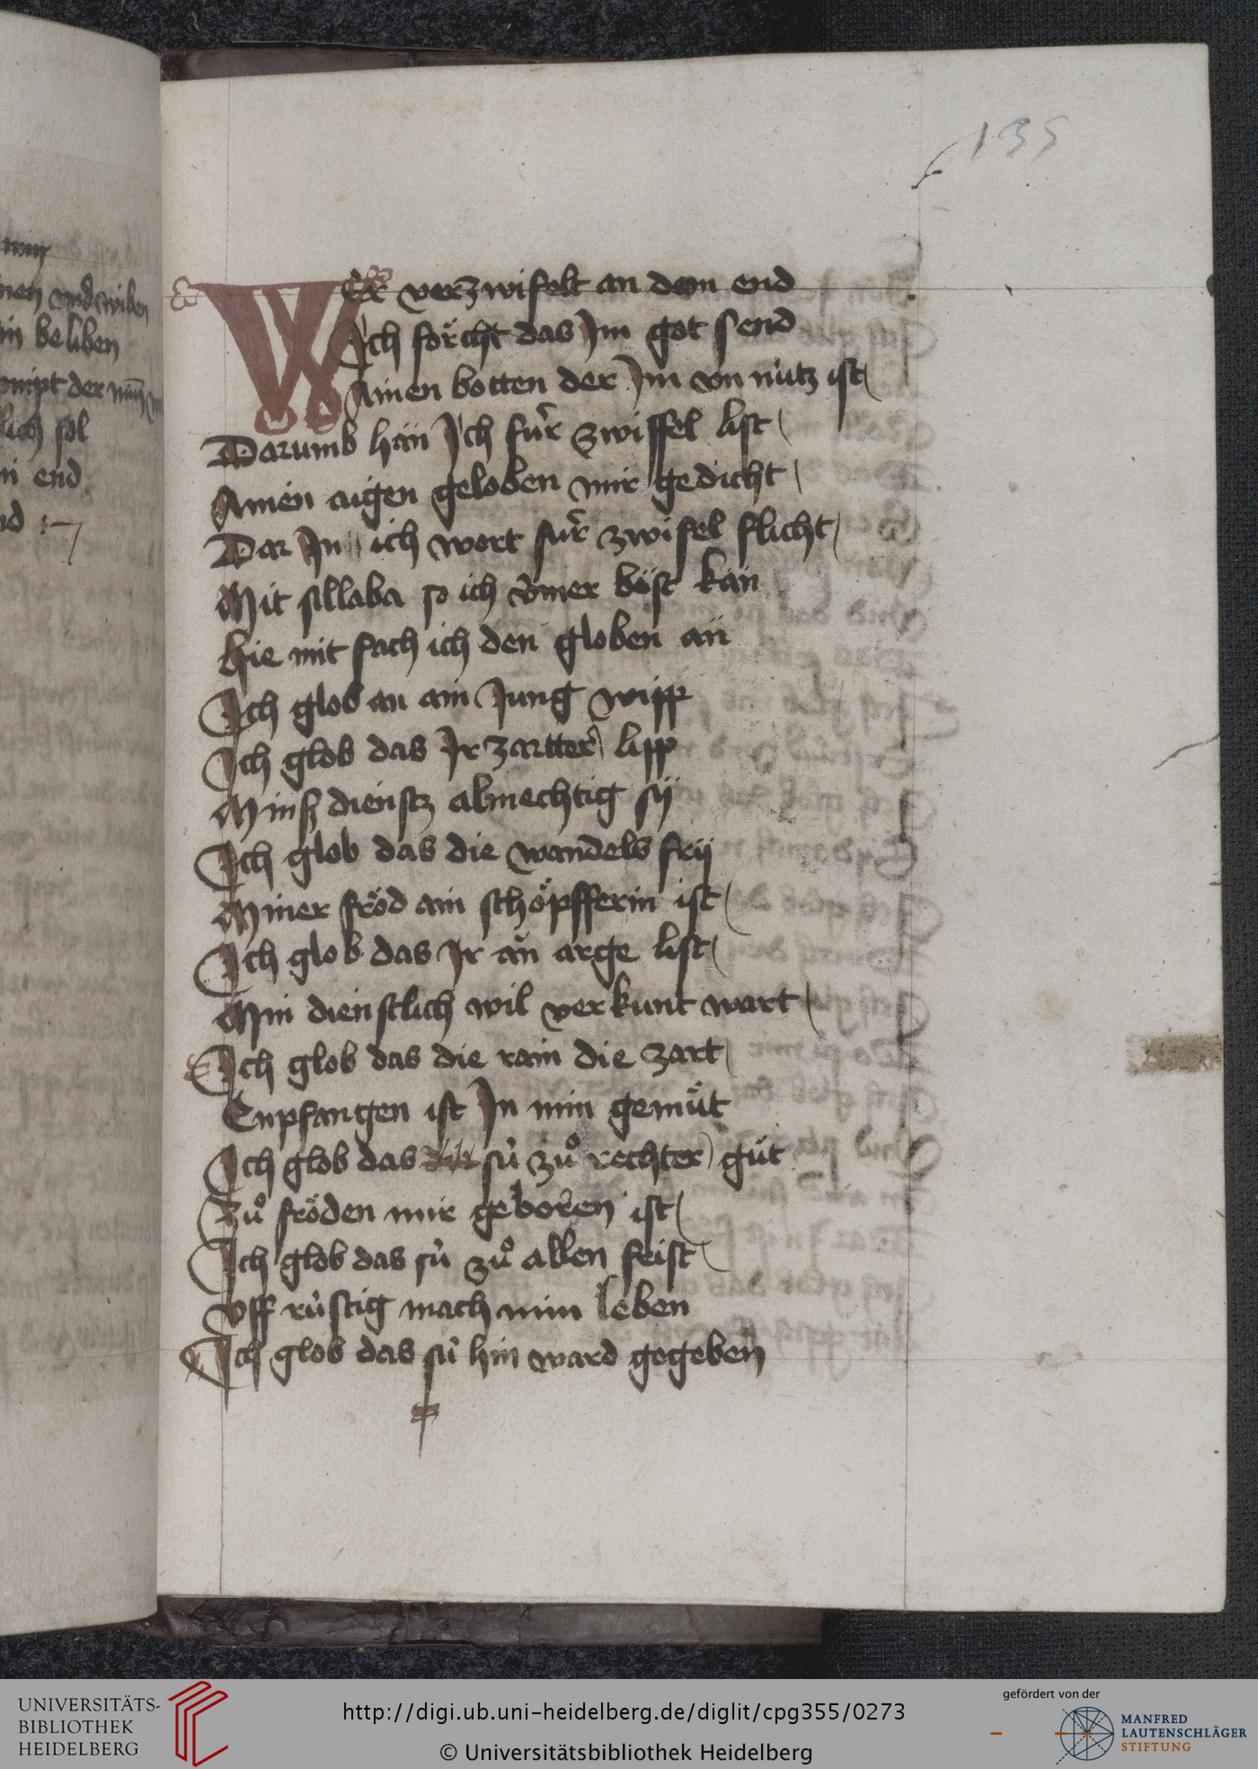 135
WEr verzwifelt an dem end
Ich förcht das Im got send
Ainen botten der Im vn nütz ist
Darumb hän Ich für zwiffel list
Ainen aigen geloben mir gedicht
Dar In ich wort für zwifel flicht
Mit sillaba so ich ymer best kan
Hie mit fach ich den globen an
Ich glob an ain Jung wipp
Ich glob das Ir zartter lipp
Minß dienstz almechtig sy
Ich glob das die wandels frij
Miner fröd ain schöpfferin ist
Ich glob das Ir än arge list
Min dienstlich wil verkunt wart
Ich glob das die rain die zart
Enpfangen ist In min gemüt
Ich glob das sü zuͦ rechter güt
Zuͦ fröden mir geboren ist
Ich glob das sü zuͦ allen feist
Vff rüstig mach min leben
Ich glob das sü hin ward gegeben
min
vnd wiben
in beliben
der
sol
end
UNIVERSITÄTS-
BIBLIOTHEK
HEIDELBERG
http://digi.ub.uni-heidelberg.de/diglit/cpg355/0273
© Universitätsbibliothek Heidelberg
gefördert von der
MANFRED
LAUTENSCHLÄGER
STIFTUNG